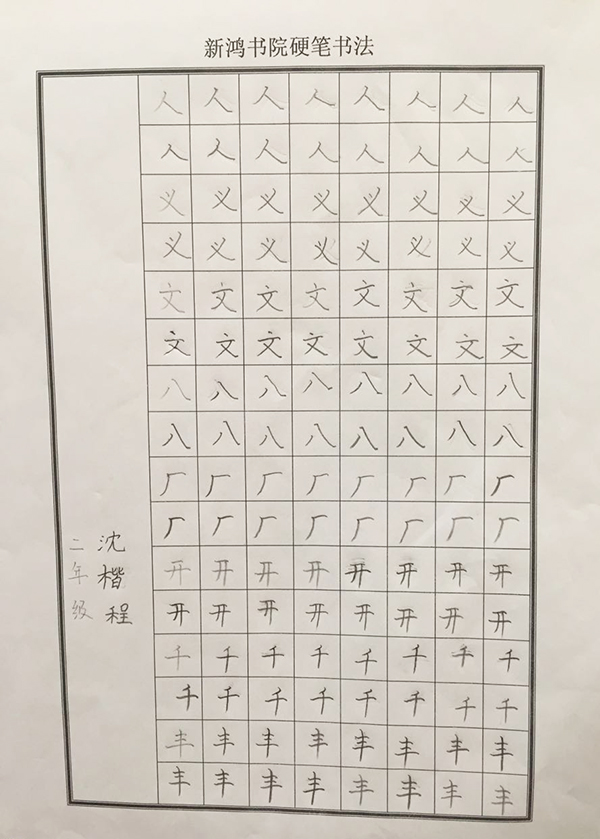 新鸿书院硬笔书法
人人人人人人人人
人人人人人人人人
义义义义义义义义
义义义义义义义义
文文文文文文文文
文文文文文文文文
八八八八八八八八
八八八八八八八八
厂厂厂厂厂厂厂厂
厂厂厂厂厂厂厂厂
开开开开开开开开
开开开开开开开开
千千千千千千千千
千千千千千千千千
丰丰丰丰丰丰丰丰
丰丰丰丰丰丰丰丰
沈楷程
二年级